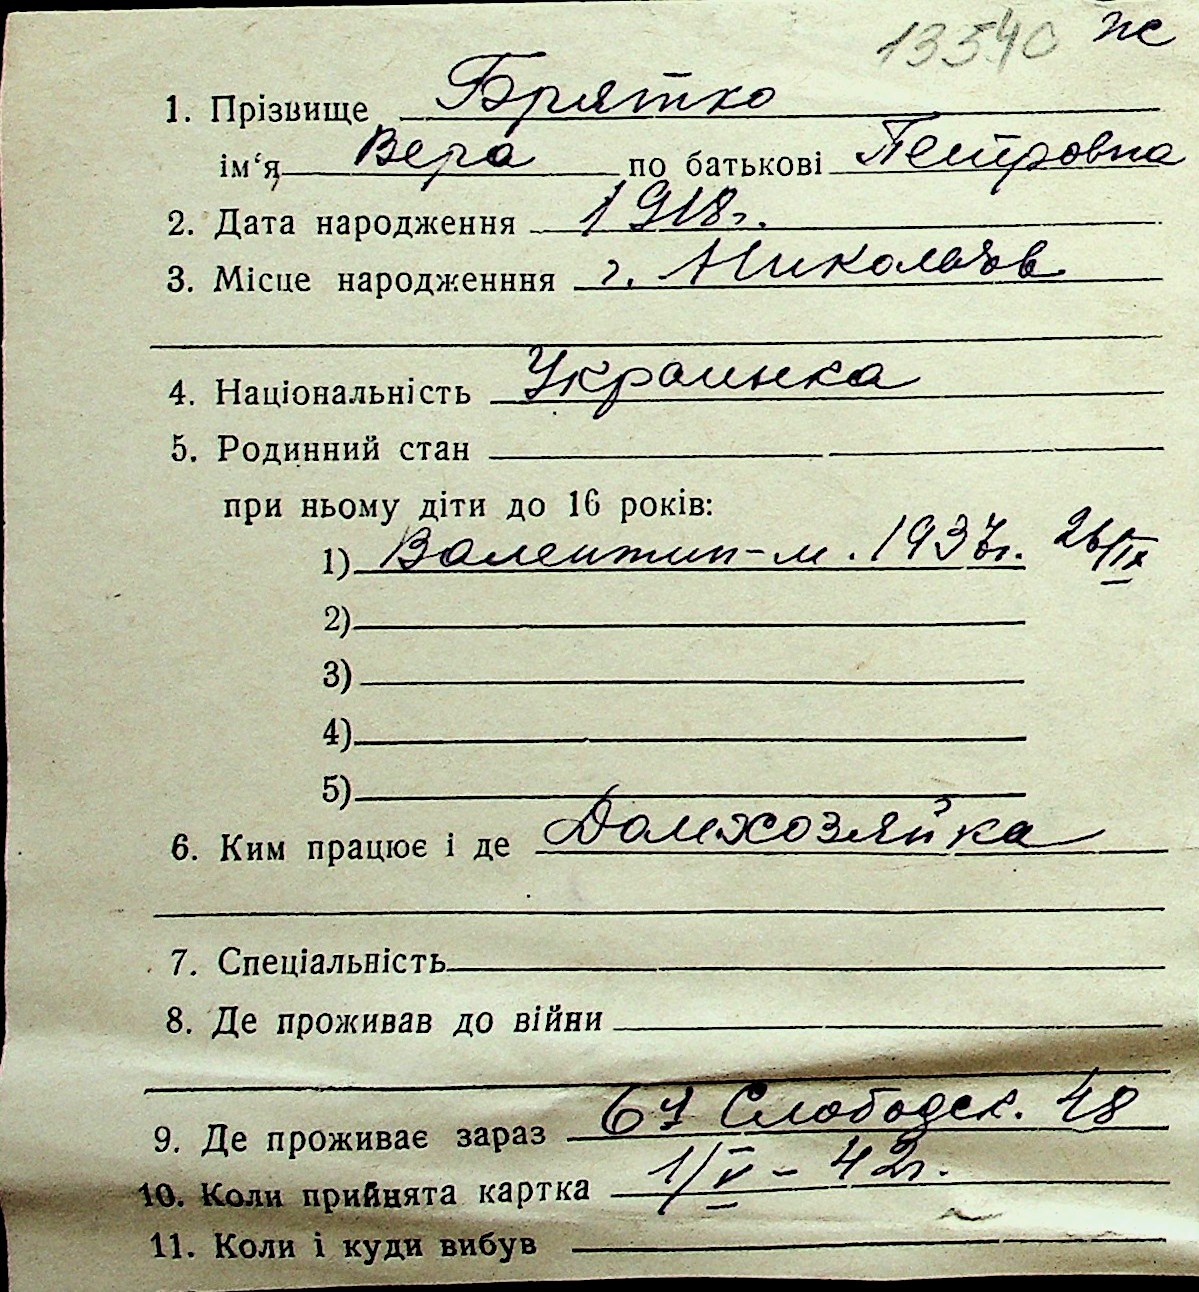 13540 ж
1. Прізвище Брятко
ім‘я Вера по батькові Петровна
2. Дата народження 1918г.
3. Місце народженння г. Николаев
4. Національність Украинка
5. Родинний стан
при ньому діти до 16 років:
1) Валентин-м. 1937г. 26/IX
2)
3)
4)
5)
6. Ким працює і де Домхозяйка
7. Спеціальність
8. Де проживав до війни
9. Де проживає зараз 67 Слободск. 48
10. Коли прийнята картка 1/V-42г.
11. Коли і куди вибув